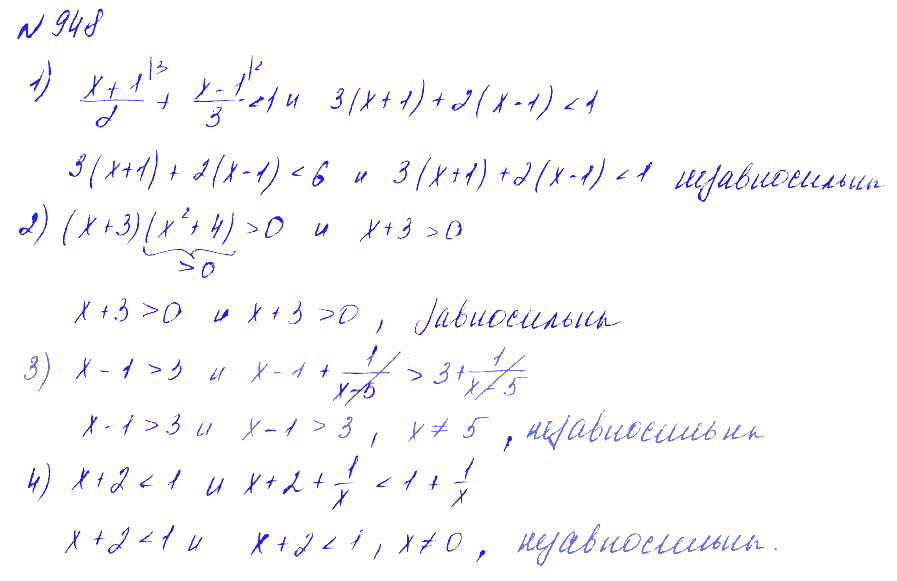 №948
1) (x+1)/2 |3 + (x-1)/3 |2 < 1 и 3(x+1)+2(x-1)<1
3(x+1)+2(x-1)<6 и 3(x+1)+2(x-1)<1 неравносильны
2) (x+3)(x²+4)>0 и x+3>0
>0
x+3>0 и x+3>0, равносильны
3) x-1>3 и x-1+1/(x-5)>3+1/(x-5)
x-1>3 и x-1>3, x≠5, неравносильны
4) x+2<1 и x+2+1/x<1+1/x
x+2<1 и x+2<1, x≠0, неравносильны.